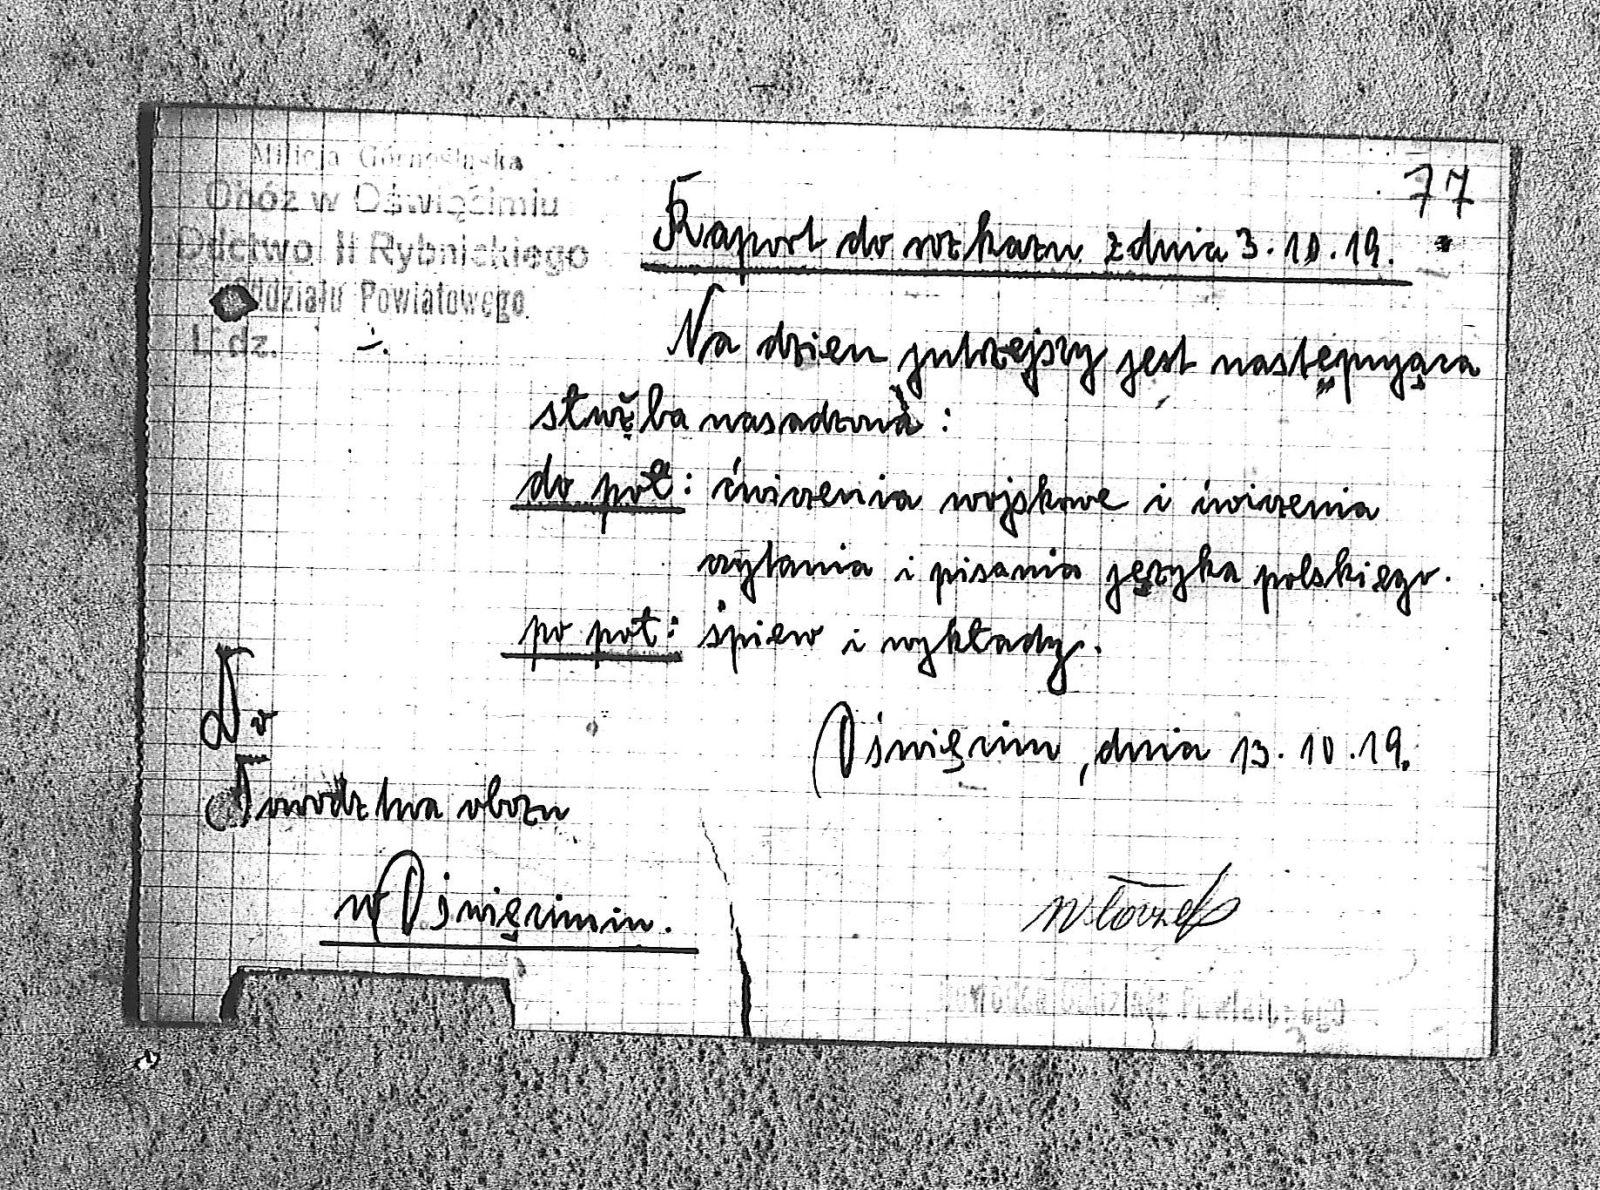 77
Milicja Górnośląska
Obóz w Oświęcimiu
Ddctwo II Rybnickiego
Oddziału Powiatowego
L. dz. ÷.
Raport do rozkazu z dnia 3.10.19.
Na dzien jutrzejszy jest następująca
służba nasadzona:
do poł: ćwiczenia wojskowe i ćwiczenia
czytania i pisania języka polskiego.
po poł: śpiew i wykłady.
Oświęcim, dnia 13.10.19.
Do
Dowodztwa obozu
w Oświęcimiu.